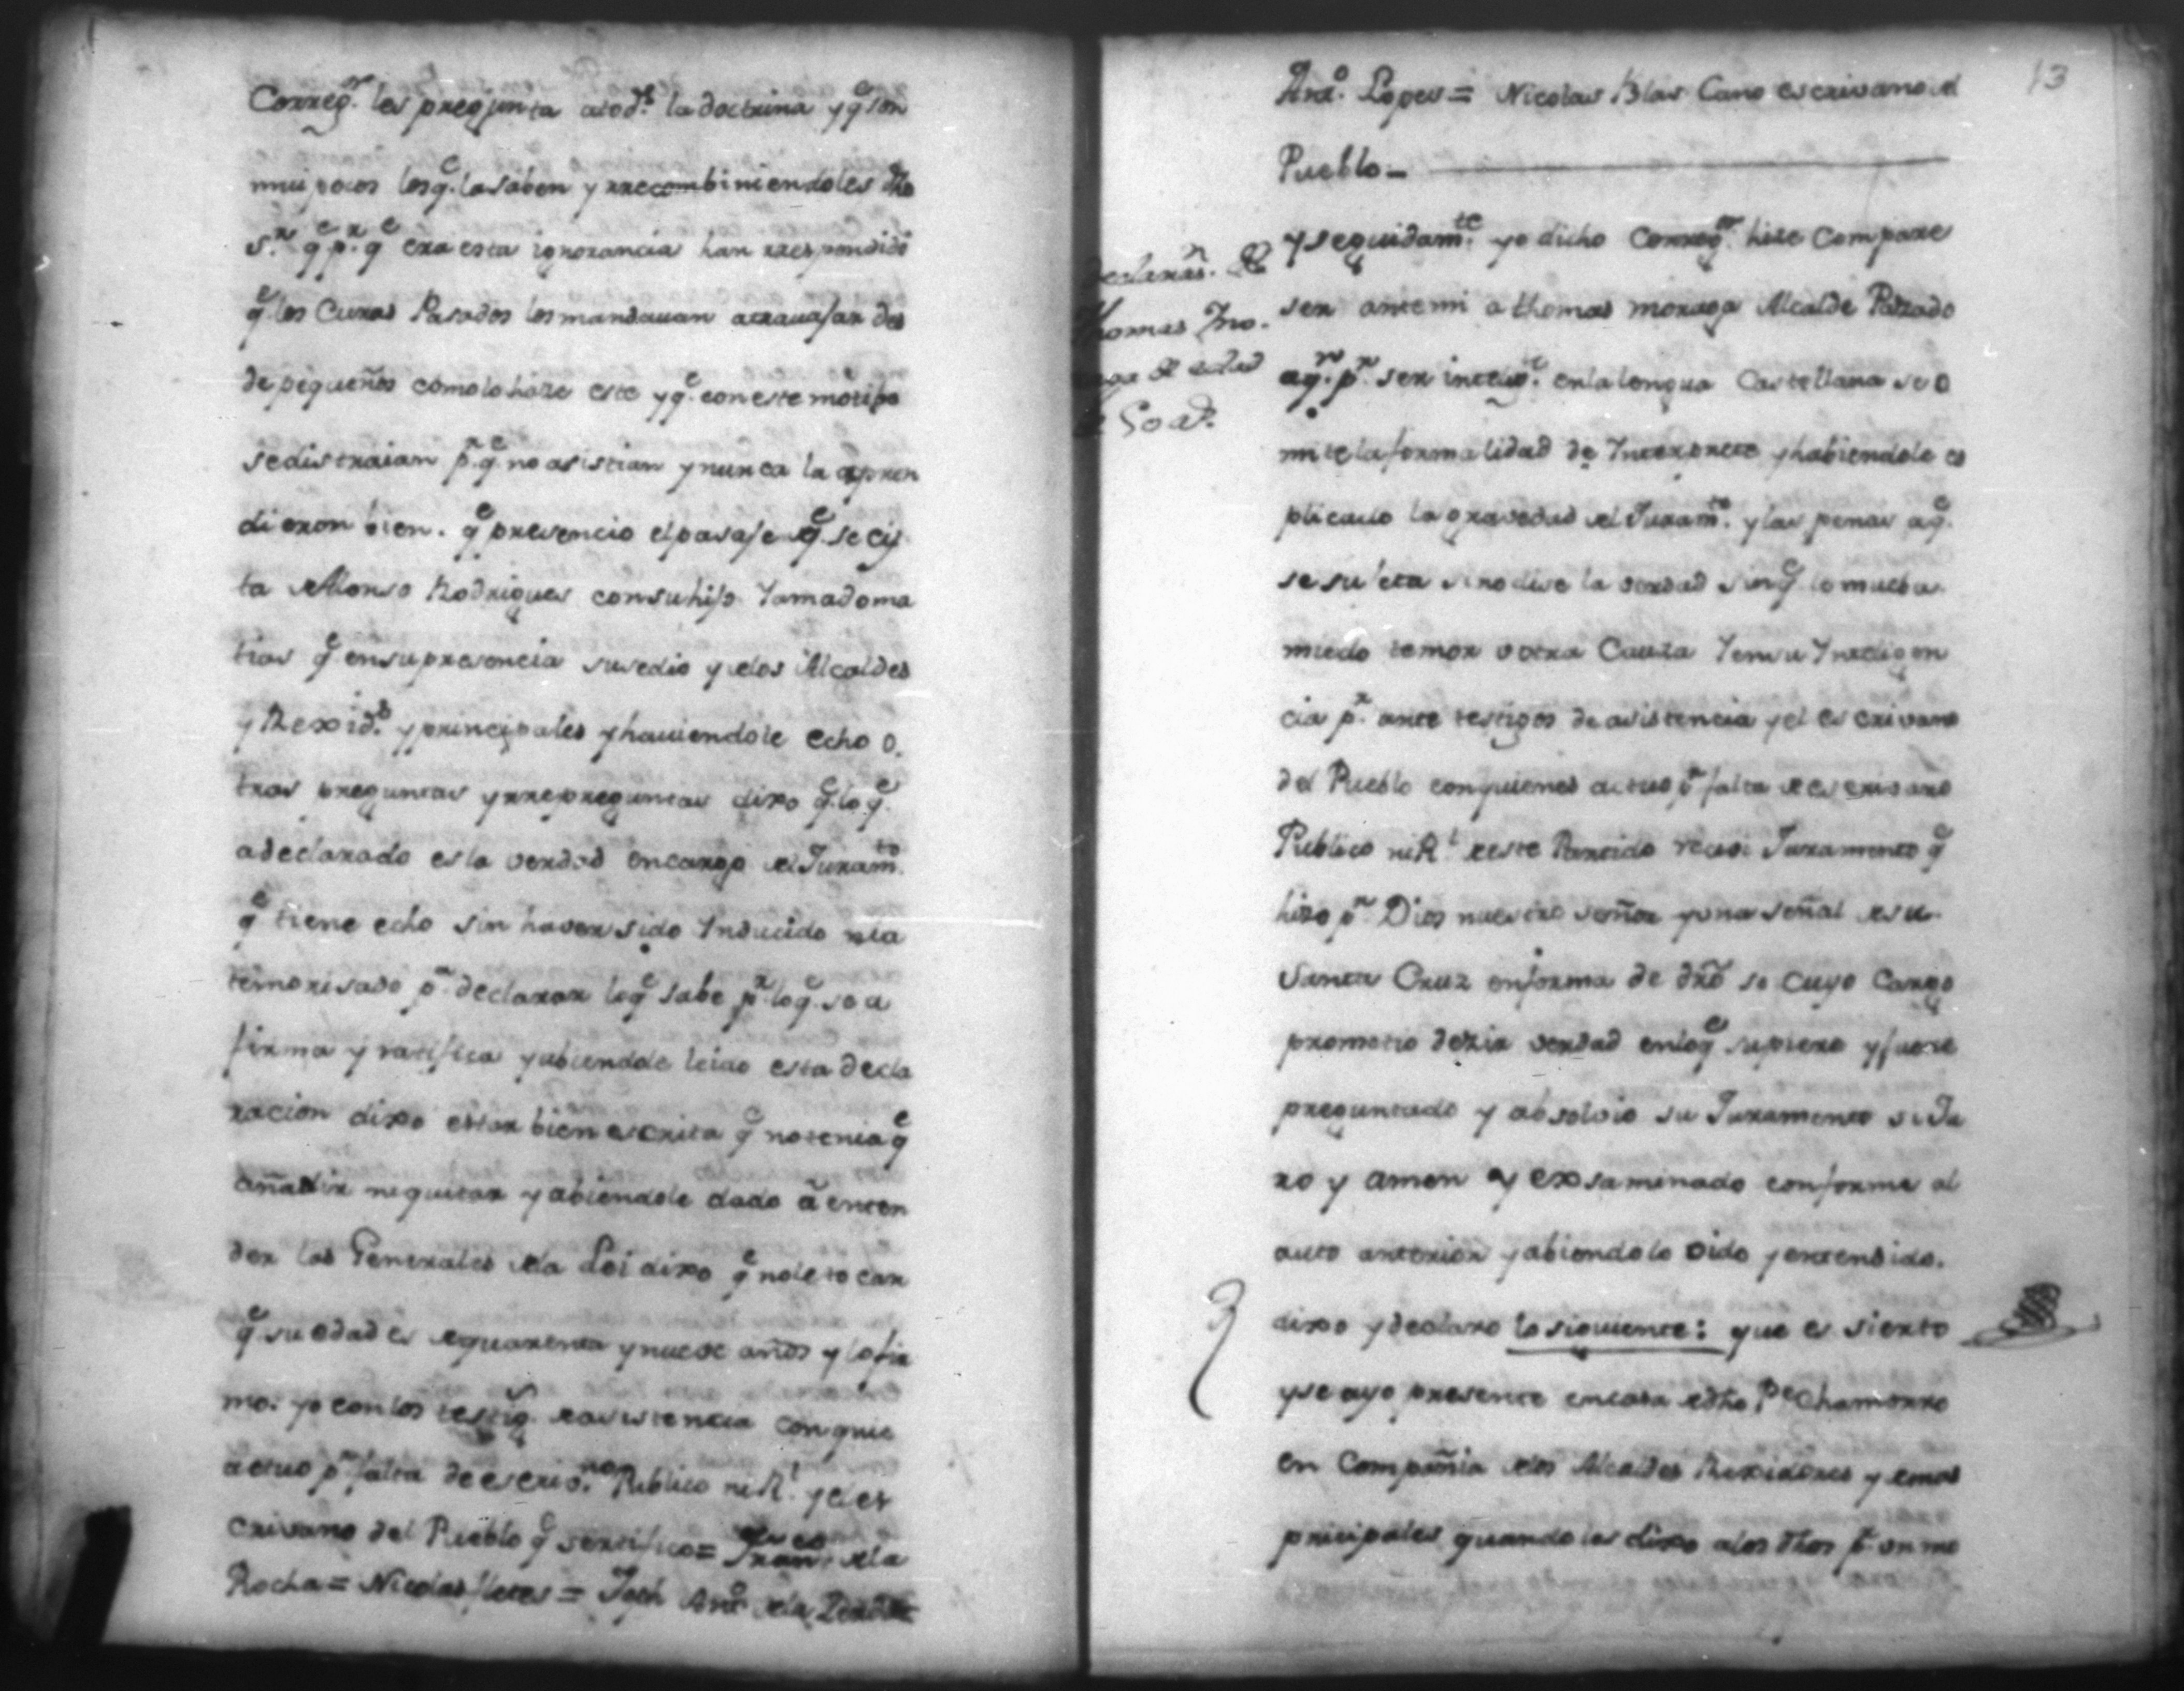 Correg.r les pregunta atod.s la doctrina y q.e son
mui pocos los q.e la saben y rrecombiniendoles dho
S.r q.e p.r q.e era esta ignorancia han rrespondido
q.e los Curas Pasados los mandavan atravajar des
de pequeños como lo hase este y q.e con este motibo
se distraian p.r q.e no asistian y nunca la apren
dieron bien. q.e presencio el pasaje q.e se ci
ta Alonso Rodrigues con su hijo
q.e en su presencia susedio y de los Alcaldes
y Rexid.s y principales y haviendole echo o
tras preguntas y rrepreguntas dixo q.e lo q.e
a declarado es la verdad en cargo del Juram.to
q.e tiene echo sin haver sido Inducido ni a
temorisado p.a declarar lo q.e sabe p.r lo q.e se a
firma y ratifica y abiendole leido esta decla
racion dixo estar bien escrita q.e no tenia q.e
añadir ni quitar y abiendole dado á enten
der las Generales de la Lei dixo q.e no le tocan
q.e su edad es de quarenta y nueve años y lo fir
mo. yo con los testig.s de asistencia con quie
actuo p.r falta de escriv.no Publico ni R.l y el es
crivano del Pueblo q.e sertifico = Fran.co de la
Rocha = Nicolas = Joseh Ant.o de la
13
Ant.o Lopes = Nicolas Blas Cano escrivano del
Pueblo
Declaras.n de
Thomas Mo
raga de edad
de 50 a.s
y seguidam.te yo dicho Correg.r hise Compare
ser ante mi a thomas moraga Alcalde Pasado
aq.n p.r ser intelig.e en la lengua Castellana se o
mite la formalidad de Interprete y habiendole es
plicado la gravedad del Juram.to y las penas a q.e
se sujeta si no dise la verdad sin q.e lo mueba
miedo temor v otra Causa Ien su Inteligen
cia p.r ante testigos de asistencia y el escrivano
del Pueblo con quienes actuo p.r falta de escrivano
Publico ni R.l de este Partido recivi Juramento q.e
hizo p.r Dios nuestro señor y una señal de su
Santa Cruz en forma de dro so cuyo Cargo
prometio dezir verdad en lo q.e supiere y fuere
preguntado y absolvio su Juramento si Ju
ro y amen y exsaminado conforme al
auto anterior y abiendolo oido y entendido.
dixo y declaro lo siguiente: que es sierto
y se ayo presente en casa de dho P.e Chamorro
en Compañia de los Alcaldes Rexidores y emas
pricipales quando les dixo a los dhos p.r un mo